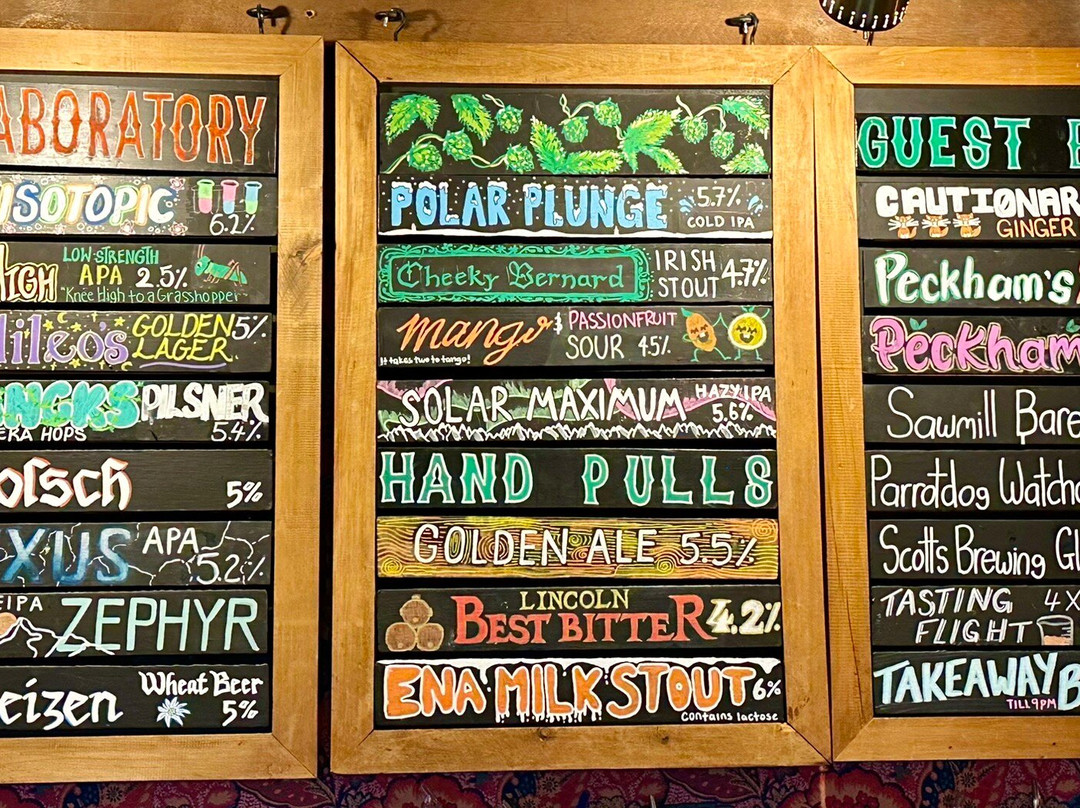 ABORATORY
ISOTOPIC
6.2%
HIGH
LOW-STRENGTH
APA 2.5%
"Knee High to a Grasshopper"
lileo's GOLDEN 5%
LAGER
PILSNER
HOPS 5.4%
olsch 5%
XUS APA
5.2%
ZEPHYR
eizen Wheat Beer
5%
POLAR PLUNGE 5.7%
COLD IPA
Cheeky Bernard IRISH
STOUT 4.7%
mango & PASSIONFRUIT
SOUR 4.5%
It takes two to tango!
SOLAR MAXIMUM HAZY IPA
5.6%
HAND PULLS
GOLDEN ALE 5.5%
LINCOLN
BEST BITTER 4.2%
ENA MILK STOUT 6%
Contains lactose
GUEST
CAUTIONAR
GINGER
Peckham's
Peckham
Sawmill Bare
Parrotdog Watch
Scotts Brewing
TASTING 4X
FLIGHT
TAKEAWAY B
TILL 9PM